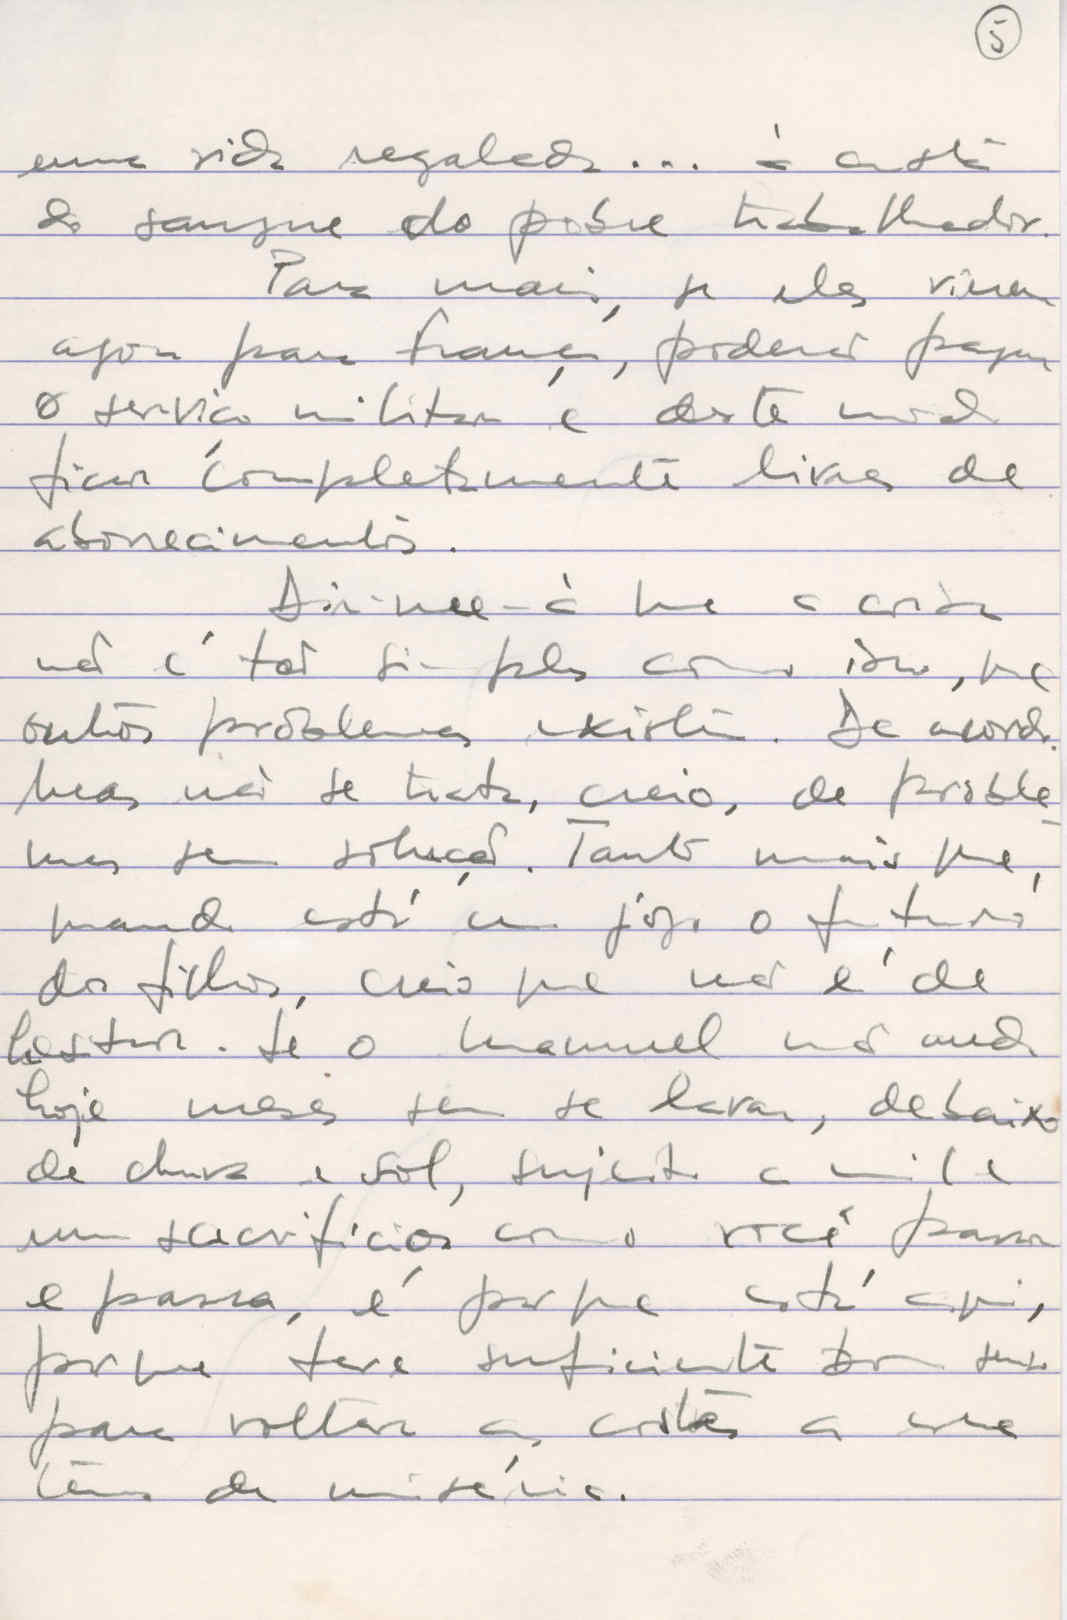 5
uma vida regalada... à custa
do sangue do pobre trabalhador.
Para mais, se eles vierem
agora para França, poderão pagar
o serviço militar e deste modo
ficar completamente livres de
aborrecimentos.
Dir-me-á que a coisa
não é tão simples como isso, que
outros problemas existem. De acordo.
Mas não se trata, creio, de proble-
mas sem solução. Tanto mais que,
quando está em jogo o futuro
dos filhos, creio que não é de
hesitar. Se o Manuel não anda
hoje meses sem se lavar, debaixo
de chuva e sol, sujeito a mil e
um sacrifícios como você passou
e passa, é porque está aqui,
porque teve suficiente bom senso
para voltar as costas a essa
terra de miséria.